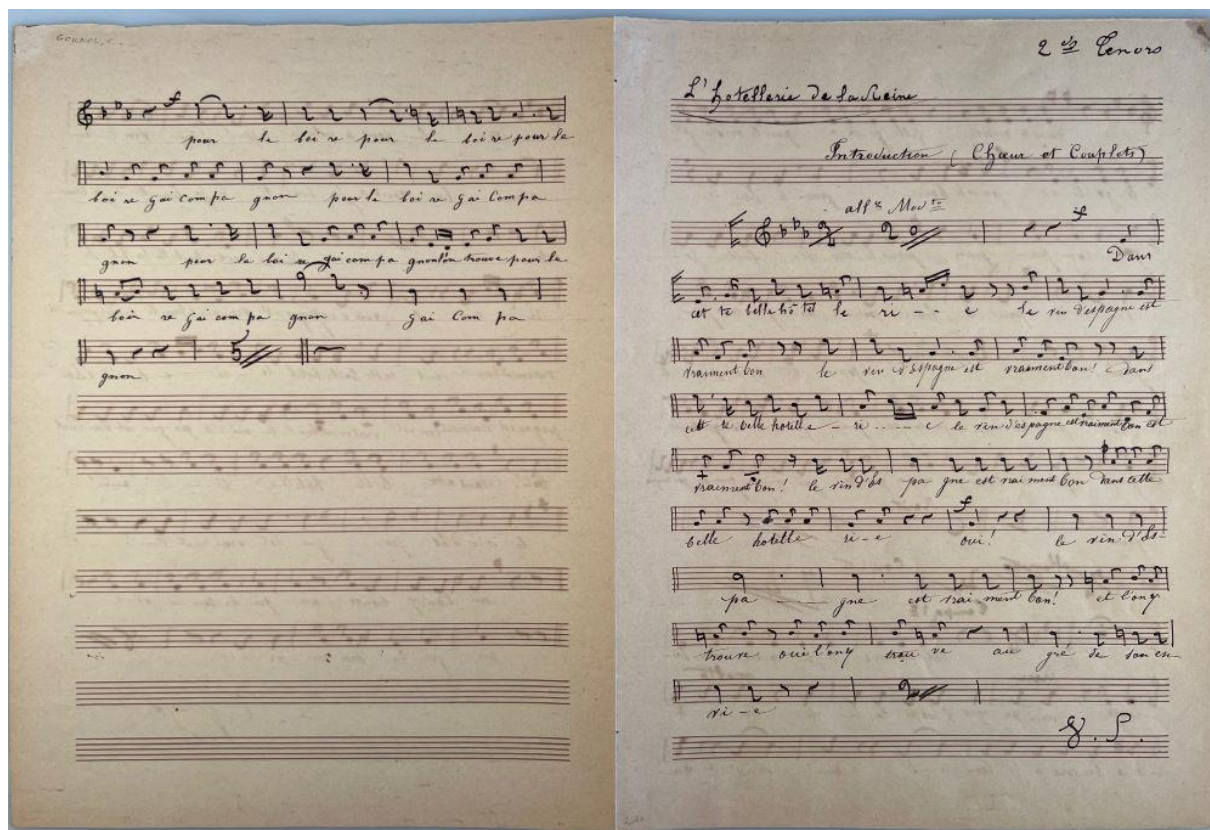 GOUNOD, C.
pour le boi re pour le boi re pour le
boi re gai com pa gnon pour le boi re gai Compa
gnon pour le boi re gai com pa gnon l'on trouve pour le
boi re gai com pa gnon gai Com pa
gnon
5
2ds Tenors
L'hotellerie de la Reine
Introduction (Chœur et Couplets)
allo Modto
f
Dans
cet te belle hô tel le ri - - e le vin d'espagne est
vraiment bon le vin d'Espagne est vraiment bon! dans
cett te belle hotelle - ri - - - - e le vin d'espagne est vraiment bon est
vraiment bon! le vin d'Es pa gne est vrai ment bon dans cette
belle hotelle ri - e oui! le vin d'Es-
pa - gne est vrai ment bon! et l'on y
trouve oui l'on y trou ve au gré de son en
vi - e
V. S.